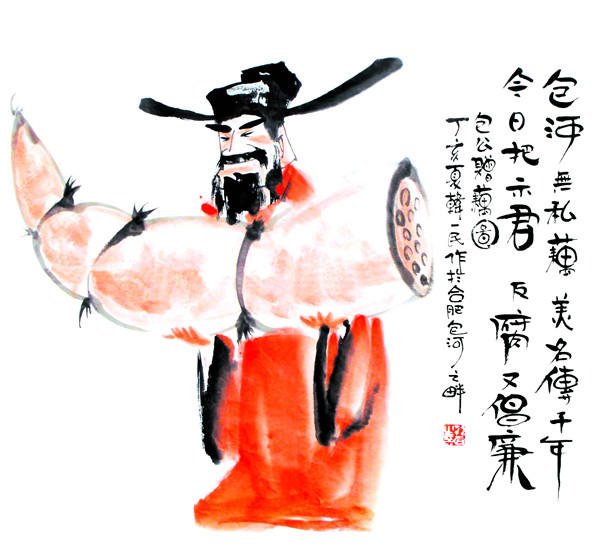 包河無私藕美名傳千年
今日把示君反腐又倡廉
包公贈藕圖
丁亥夏韓一民作於合肥包河之畔